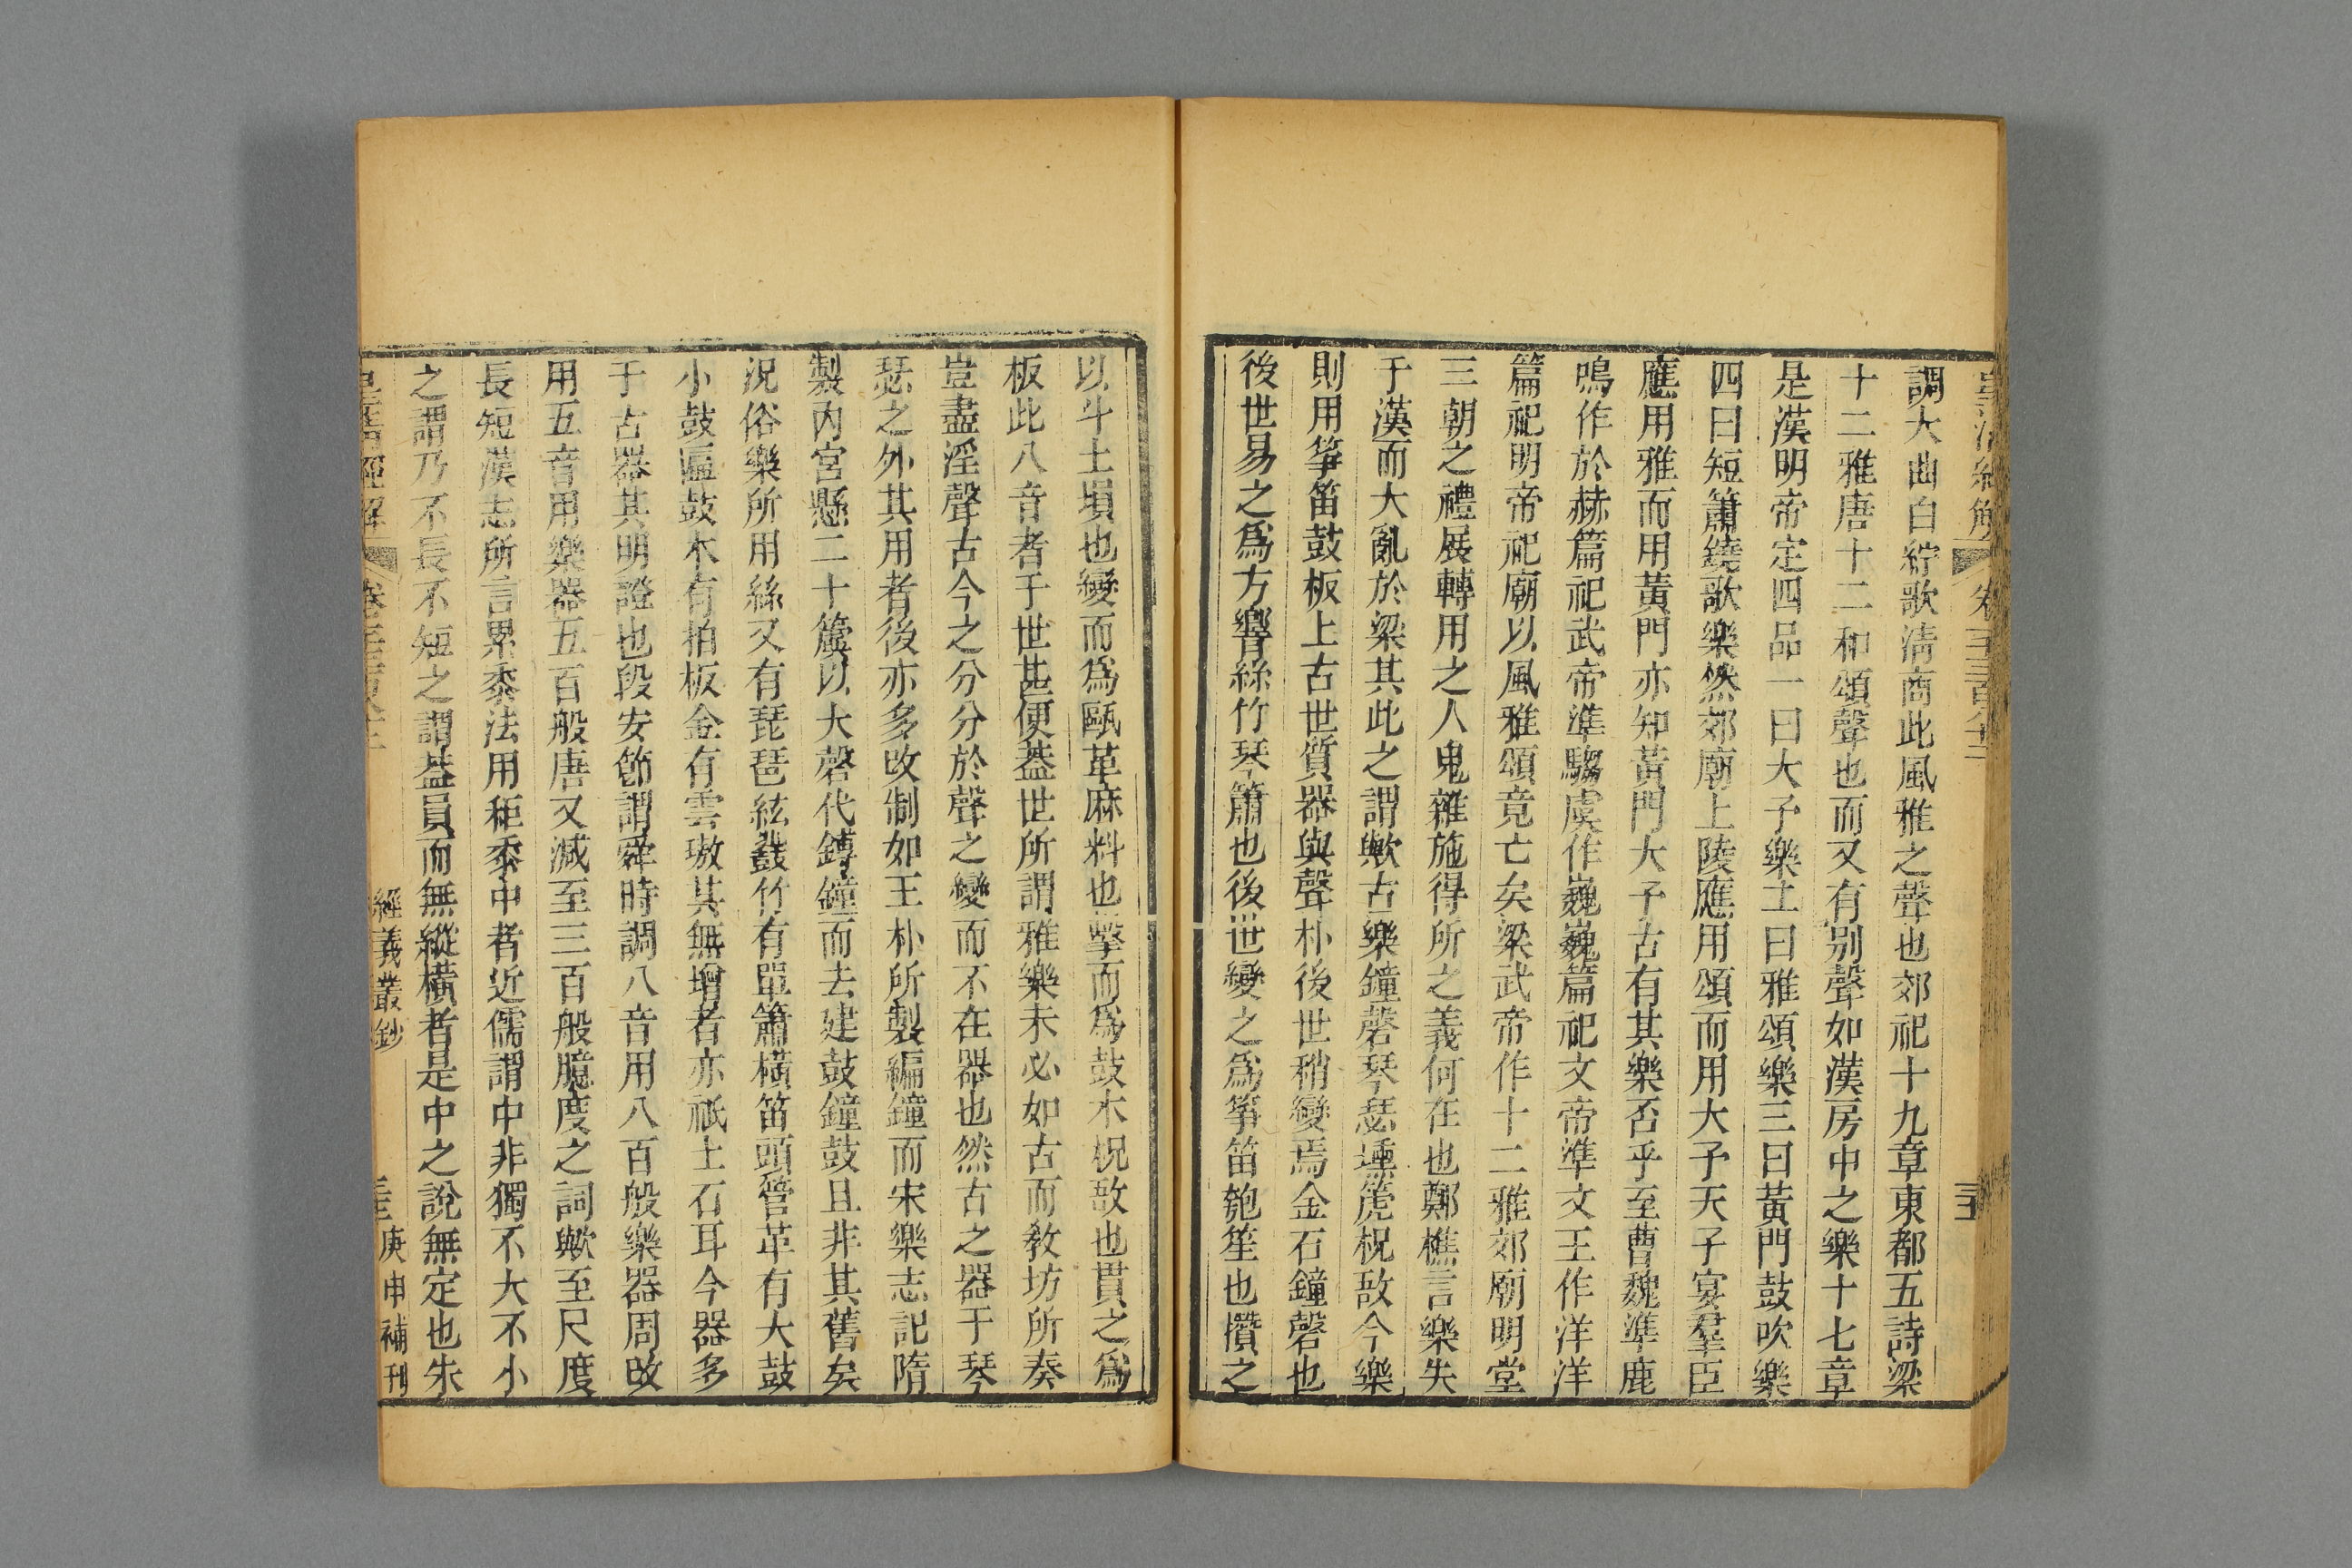 調大曲白紵歌淸商此風雅之聲也郊祀十九章東都五詩梁
十二雅唐十二和頌聲也而又有别聲如漢房中之樂十七章
是漢明帝定四品一曰大予樂二曰雅頌樂三曰黃門鼓吹樂
四曰短簫鐃歌樂然郊廟上陵應用頌而用大予天子宴羣臣
應用雅而用黃門亦知黃門大予古有其樂否乎至曹魏準鹿
鳴作於赫篇祀武帝準騶虞作巍巍篇祀文帝準文王作洋洋
篇祀明帝祀廟以風雅頌竟亡矣梁武帝作十二雅郊廟明堂
三朝之禮展轉用之人鬼雜施得所之義何在也鄭樵言樂失
于漢而大亂於梁其此之謂歟古樂鐘磬琴瑟壎篪柷敔今樂
則用筝笛鼓板上古世質器與聲朴後世稍變焉金石鐘磬也
後世易之爲方響絲竹琴簫也後世變之爲筝笛匏笙也攢之
以斗土塤也變而爲甌革麻料也擊而爲鼓木柷敔也貫之爲
板此八音者于世甚便葢世所謂雅樂未必如古而敎坊所奏
豈盡淫聲古今之分分於聲之變而不在器也然古之器于琴
瑟之外其用者後亦多改制如王朴所製編鐘而宋樂志記隋
製內宮懸二十簴以大磬代鎛鐘而去建鼓鐘鼓且非其舊矣
況俗樂所用絲又有琵琶絃鼗竹有單簫橫笛頭管革有大鼓
小鼓匾鼓木有拍板金有雲璈其無增者亦祇土石耳今器多
于古器其明證也段安節謂舜時調八音用八百般樂器周改
用五音用樂器五百般唐又減至三百般臆度之詞歟至尺度
長短漢志所言累黍法用秬黍中者近儒謂中非獨不大不小
之謂乃不長不短之謂葢員而無縱橫者是中之說無定也朱
經義叢鈔
庚申補刊